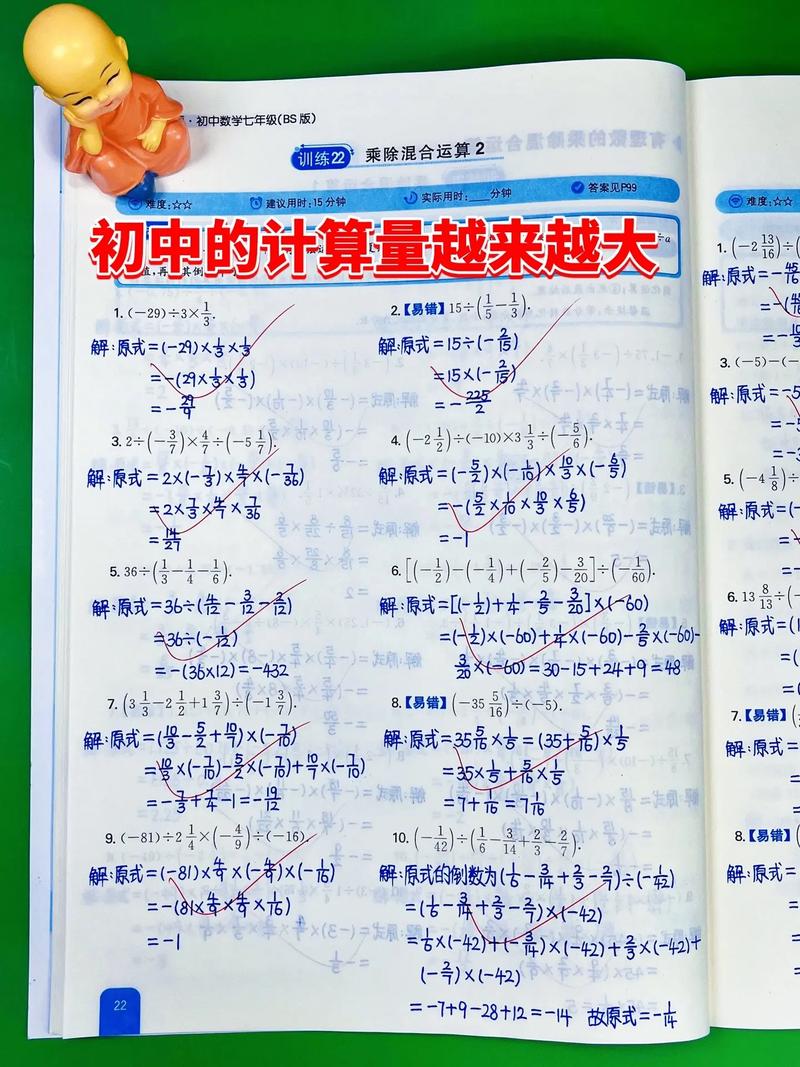 ·初中数学七年级(BS版)
训练22 乘除混合运算2
难度:☆☆ 建议用时:15分钟 实际用时:____分钟 答案见P99
初中的计算量越来越大
÷a
值,再 其倒
1. (-29)÷3×1/3.
解:原式=(-29)×1/3×1/3
=-(29×1/3×1/3)
=-29/9
2.【易错】15÷(1/5-1/3).
解:原式=15÷(-2/15)
=15×(-2/15)
=-225/2
3. 2÷(-3/7)×4/7÷(-5 1/7).
解:原式=2×(-7/3)×4/7×(-7/36)
=2×7/3×4/7×7/36
=14/27
4. (-2 1/2)÷(-10)×3 1/3÷(-5/6).
解:原式=(-5/2)×(-1/10)×10/3×(-6/5)
=-(5/2×1/10×10/3×6/5)
=-1
5. 36÷(1/3-1/4-1/6).
解:原式=36÷(4/12-3/12-2/12)
=36÷(-1/12)
=-(36×12)=-432
6. [(-1/2)-(-1/4)+(-2/5)-3/20]÷(-1/60).
解:原式=[(-1/2)+1/4-2/5-3/20]×(-60)
=(-1/2)×(-60)+1/4×(-60)-2/5×(-60)-
3/20×(-60)=30-15+24+9=48
7. (3 1/3-2 1/2+1 3/7)÷(-1 3/7).
解:原式=(10/3-5/2+10/7)×(-7/10)
=10/3×(-7/10)-5/2×(-7/10)+10/7×(-7/10)
=-7/3+7/4-1=-19/12
8.【易错】(-35 5/16)÷(-5).
解:原式=35 5/16×1/5=(35+5/16)×1/5
=35×1/5+5/16×1/5
=7+1/16=7 1/16
9. (-81)÷2 1/4×(-4/9)÷(-16).
解:原式=(-81)×4/9×(-4/9)×(-1/16)
=-(81×4/9×4/9×1/16)
=-1
10. (-1/42)÷(1/6-3/14+2/3-2/7).
解:原式的倒数为(1/6-3/14+2/3-2/7)÷(-1/42)
=(1/6-3/14+2/3-2/7)×(-42)
=1/6×(-42)+(-3/14)×(-42)+2/3×(-42)+
(-2/7)×(-42)
=-7+9-28+12=-14 故原式=-1/14
22
难度:☆☆
1. (-2 13/16)÷
解:原式=-45/16
3. (-5)-(-
解:原式=-5
5. (-4 1/8)÷
解:原式=(-
6. 13 8/13÷(-
解:原式=(1
7.【易错】
解:原式=
8.【易错】
解:原式=